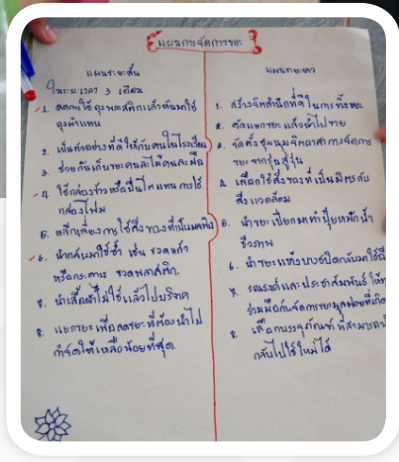 แผนการจัดการขยะ
แผนระยะสั้น
ในระยะเวลา 3 เดือน
1. ลดการใช้ถุงพลาสติกแล้วหันมาใช้
ถุงผ้าแทน
2. เป็นตัวอย่างที่ดีให้กับคนในโรงเรียน
3. ช่วยกันเก็บขยะคนละไม้คนละมือ
4. ใช้กล่องข้าวหรือปิ่นโตแทนการใช้
กล่องโฟม
5. หลีกเลี่ยงการใช้สิ่งของที่เป็นมลพิษ
6. นำกลับมาใช้ซ้ำ เช่น ขวดแก้ว
หรือกระดาษ ขวดพลาสติก.
7. นำเสื้อผ้าไม่ใช้แล้วไปบริจาค
8. แยกขยะเพื่อลดขยะที่ต้องนำไป
กำจัดให้เหลือน้อยที่สุด
แผนระยะยาว
1. สร้างจิตสำนึกที่ดีในการทิ้งขยะ
2. คัดแยกขยะแล้วนำไปขาย
3. จัดตั้งชุมนุมจิตอาสาการจัดการ
ขยะจากรุ่นสู่รุ่น
4. เลือกใช้สิ่งของที่เป็นมิตรกับ
สิ่งแวดล้อม
5. นำขยะเปียกมาทำปุ๋ยหมักน้ำ
ชีวภาพ
6. นำขยะแห้งบางชนิดกลับมาใช้
7. รณรงค์และประชาสัมพันธ์ให้
ร่วมมือกันจัดการขยะมูลฝอยที่เกิด
8. เลือกบรรจุภัณฑ์ที่สามารถ
กลับไปใช้ใหม่ได้